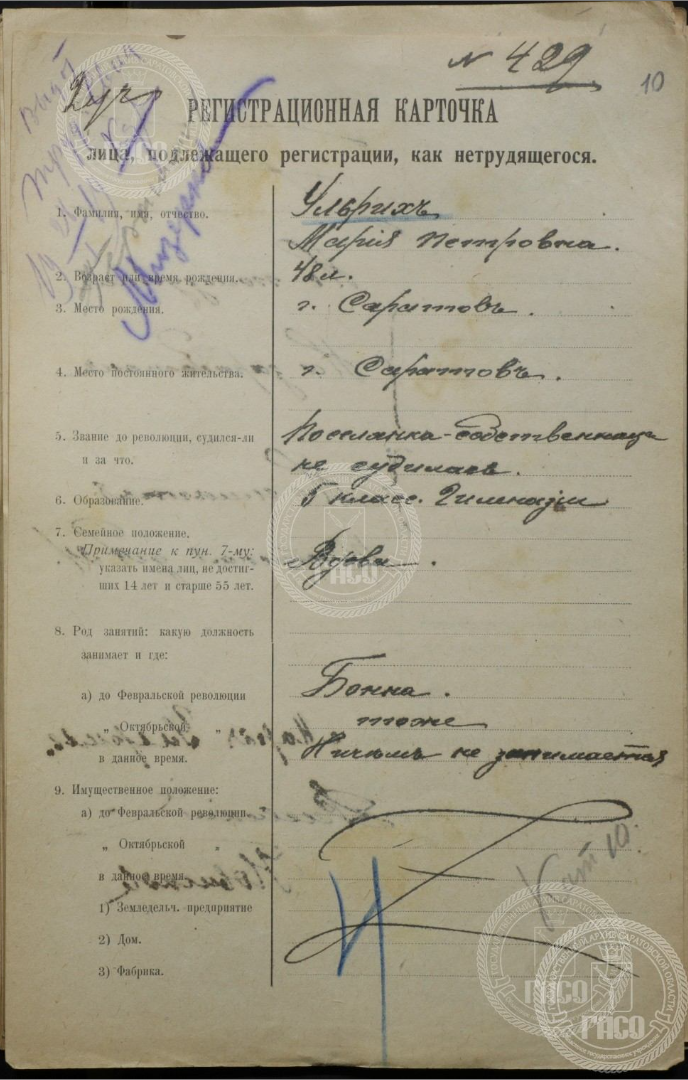 № 429
10
2 уч
РЕГИСТРАЦИОННАЯ КАРТОЧКА
лица, подлежащего регистрации, как нетрудящегося.
1. Фамилия, имя, отчество.
Ульрихъ
Марія Петровна.
2. Возраст или время рождения.
48 л.
3. Место рождения.
г. Саратовъ.
4. Место постоянного жительства.
г. Саратовъ.
5. Звание до революции, судился-ли
и за что.
Поселянка-собственница
не судилась.
6. Образование.
5 класс. Гимназіи
7. Семейное положение.
Примечание к пун. 7-му:
указать имена лиц, не достиг-
ших 14 лет и старше 55 лет.
Вдова.
8. Род занятий: какую должность
занимает и где:
а) до Февральской революции
Бонна.
„ Октябрьской „
тоже
в данное время.
Ничѣмъ не занимается
9. Имущественное положение:
а) до Февральской революции
„ Октябрьской „
в данное время.
1) Земледельч. предприятие
2) Дом.
3) Фабрика.
Кат 10.
ГАСО
ГАСО
ГАСО
ГАСО